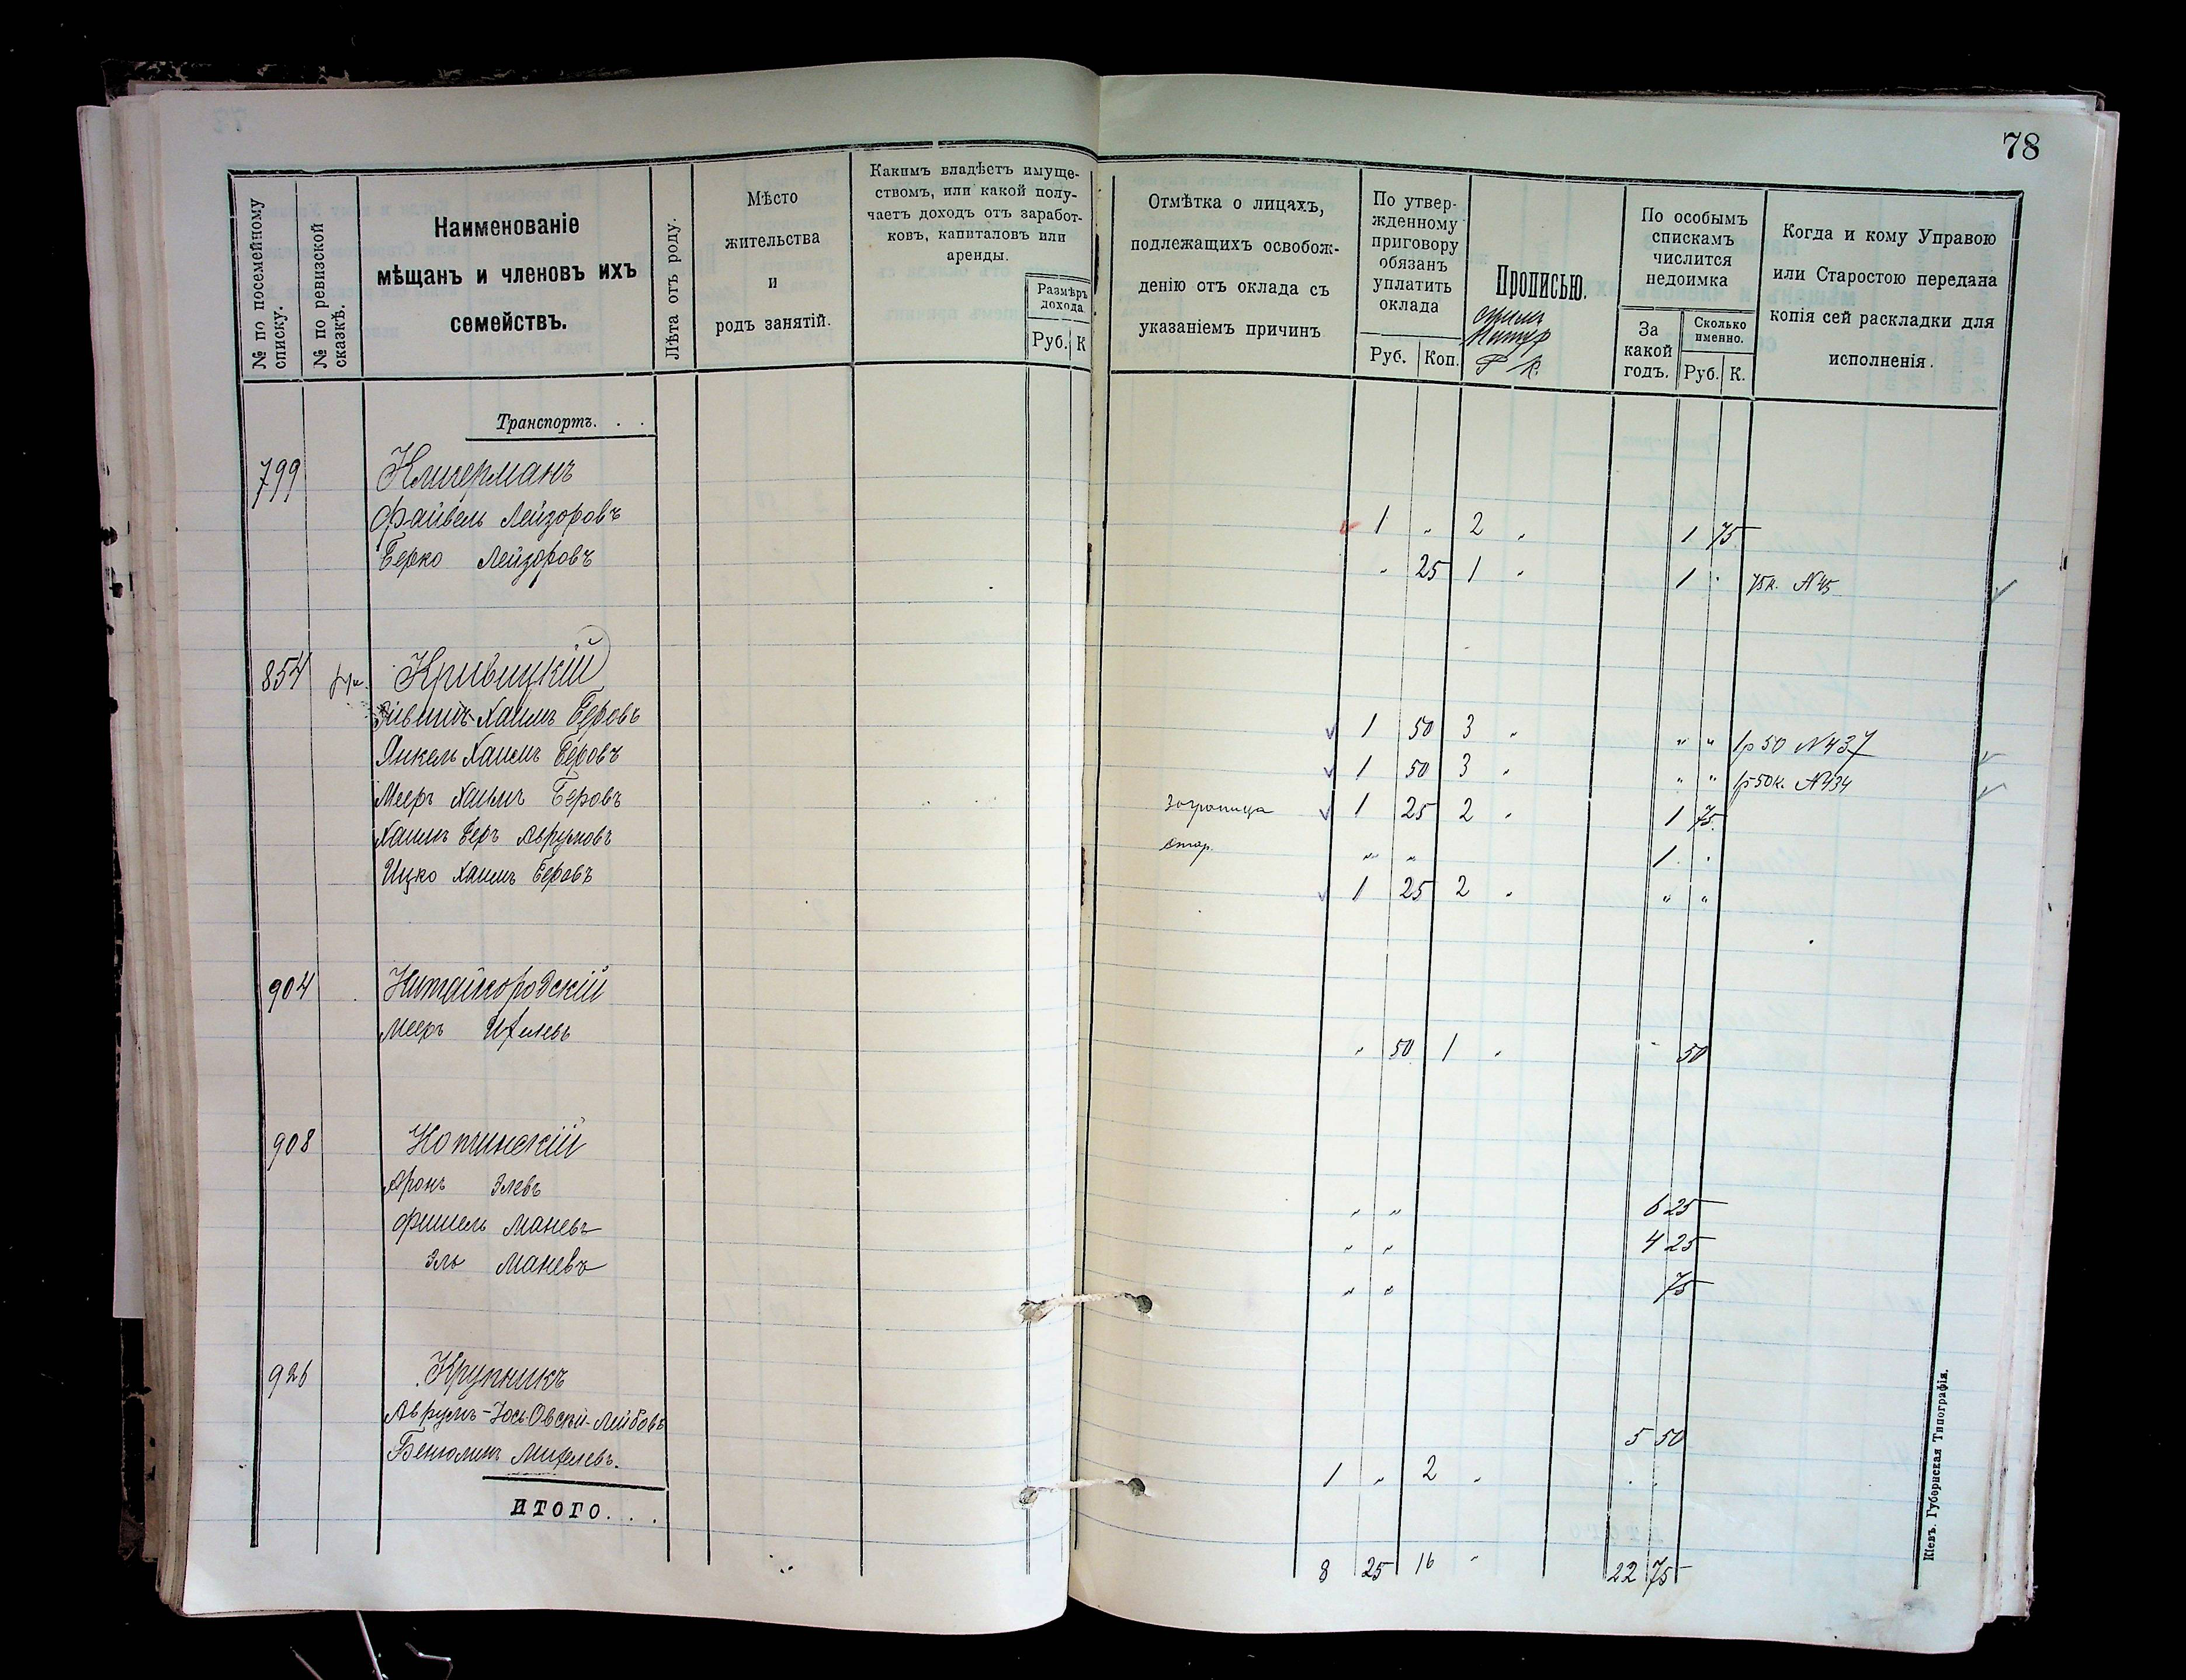 78
№ по посемейному списку.
№ по ревизской сказкѣ.
Наименованіе
мѣщанъ и членовъ ихъ
семействъ.
Лѣта отъ роду.
Мѣсто
жительства
и
родъ занятій.
Какимъ владѣетъ имуще-
ствомъ, или какой полу-
чаетъ доходъ отъ заработ-
ковъ, капиталовъ или
аренды.
Размѣръ
дохода
Руб. К
Отмѣтка о лицахъ,
подлежащихъ освобож-
денію отъ оклада съ
указаніемъ причинъ
По утвер-
жденному
приговору
обязанъ
уплатить
оклада
Руб. Коп.
Прописью.
Р К.
По особымъ
спискамъ
числится
недоимка
За
какой
годъ.
Сколько
именно.
Руб. К.
Когда и кому Управою
или Старостою передана
копія сей раскладки для
исполненія.
Транспортъ. . .
799 Клигерманъ
Файвель Лейзоровъ 1 „ 2 „ 1 75
Берко Лейзоровъ „ 25 1 „ 1 „ 75к. №45
854 Кривицкій
Хаимъ Беровъ 1 50 3 „ „ „ 1р 50 №437
Янкель Хаимъ Беровъ 1 50 3 „ „ „ 1р 50к. №434
Мееръ Хаимъ Беровъ заграница 1 25 2 „ 1 75
Хаимъ Беръ Аврумовъ стар. „ „ 1 „
Ицко Хаимъ Беровъ 1 25 2 „ „ „
904 Китайгородскій
Мееръ „ 50 1 „ „ 50
908 Копинскій
Аронъ Элевъ „ „ 6 25
Фишель Маневъ „ „ 4 25
Эль Маневъ „ „ 75
926 Крупникъ
Аврумъ-Іось-Овсій-Лейбовъ 5 50
Беніоминъ Михелевъ. 1 „ 2 „
ИТОГО. . .
8 25 16 „ 22 75
Кіевъ. Губернская Типографія.